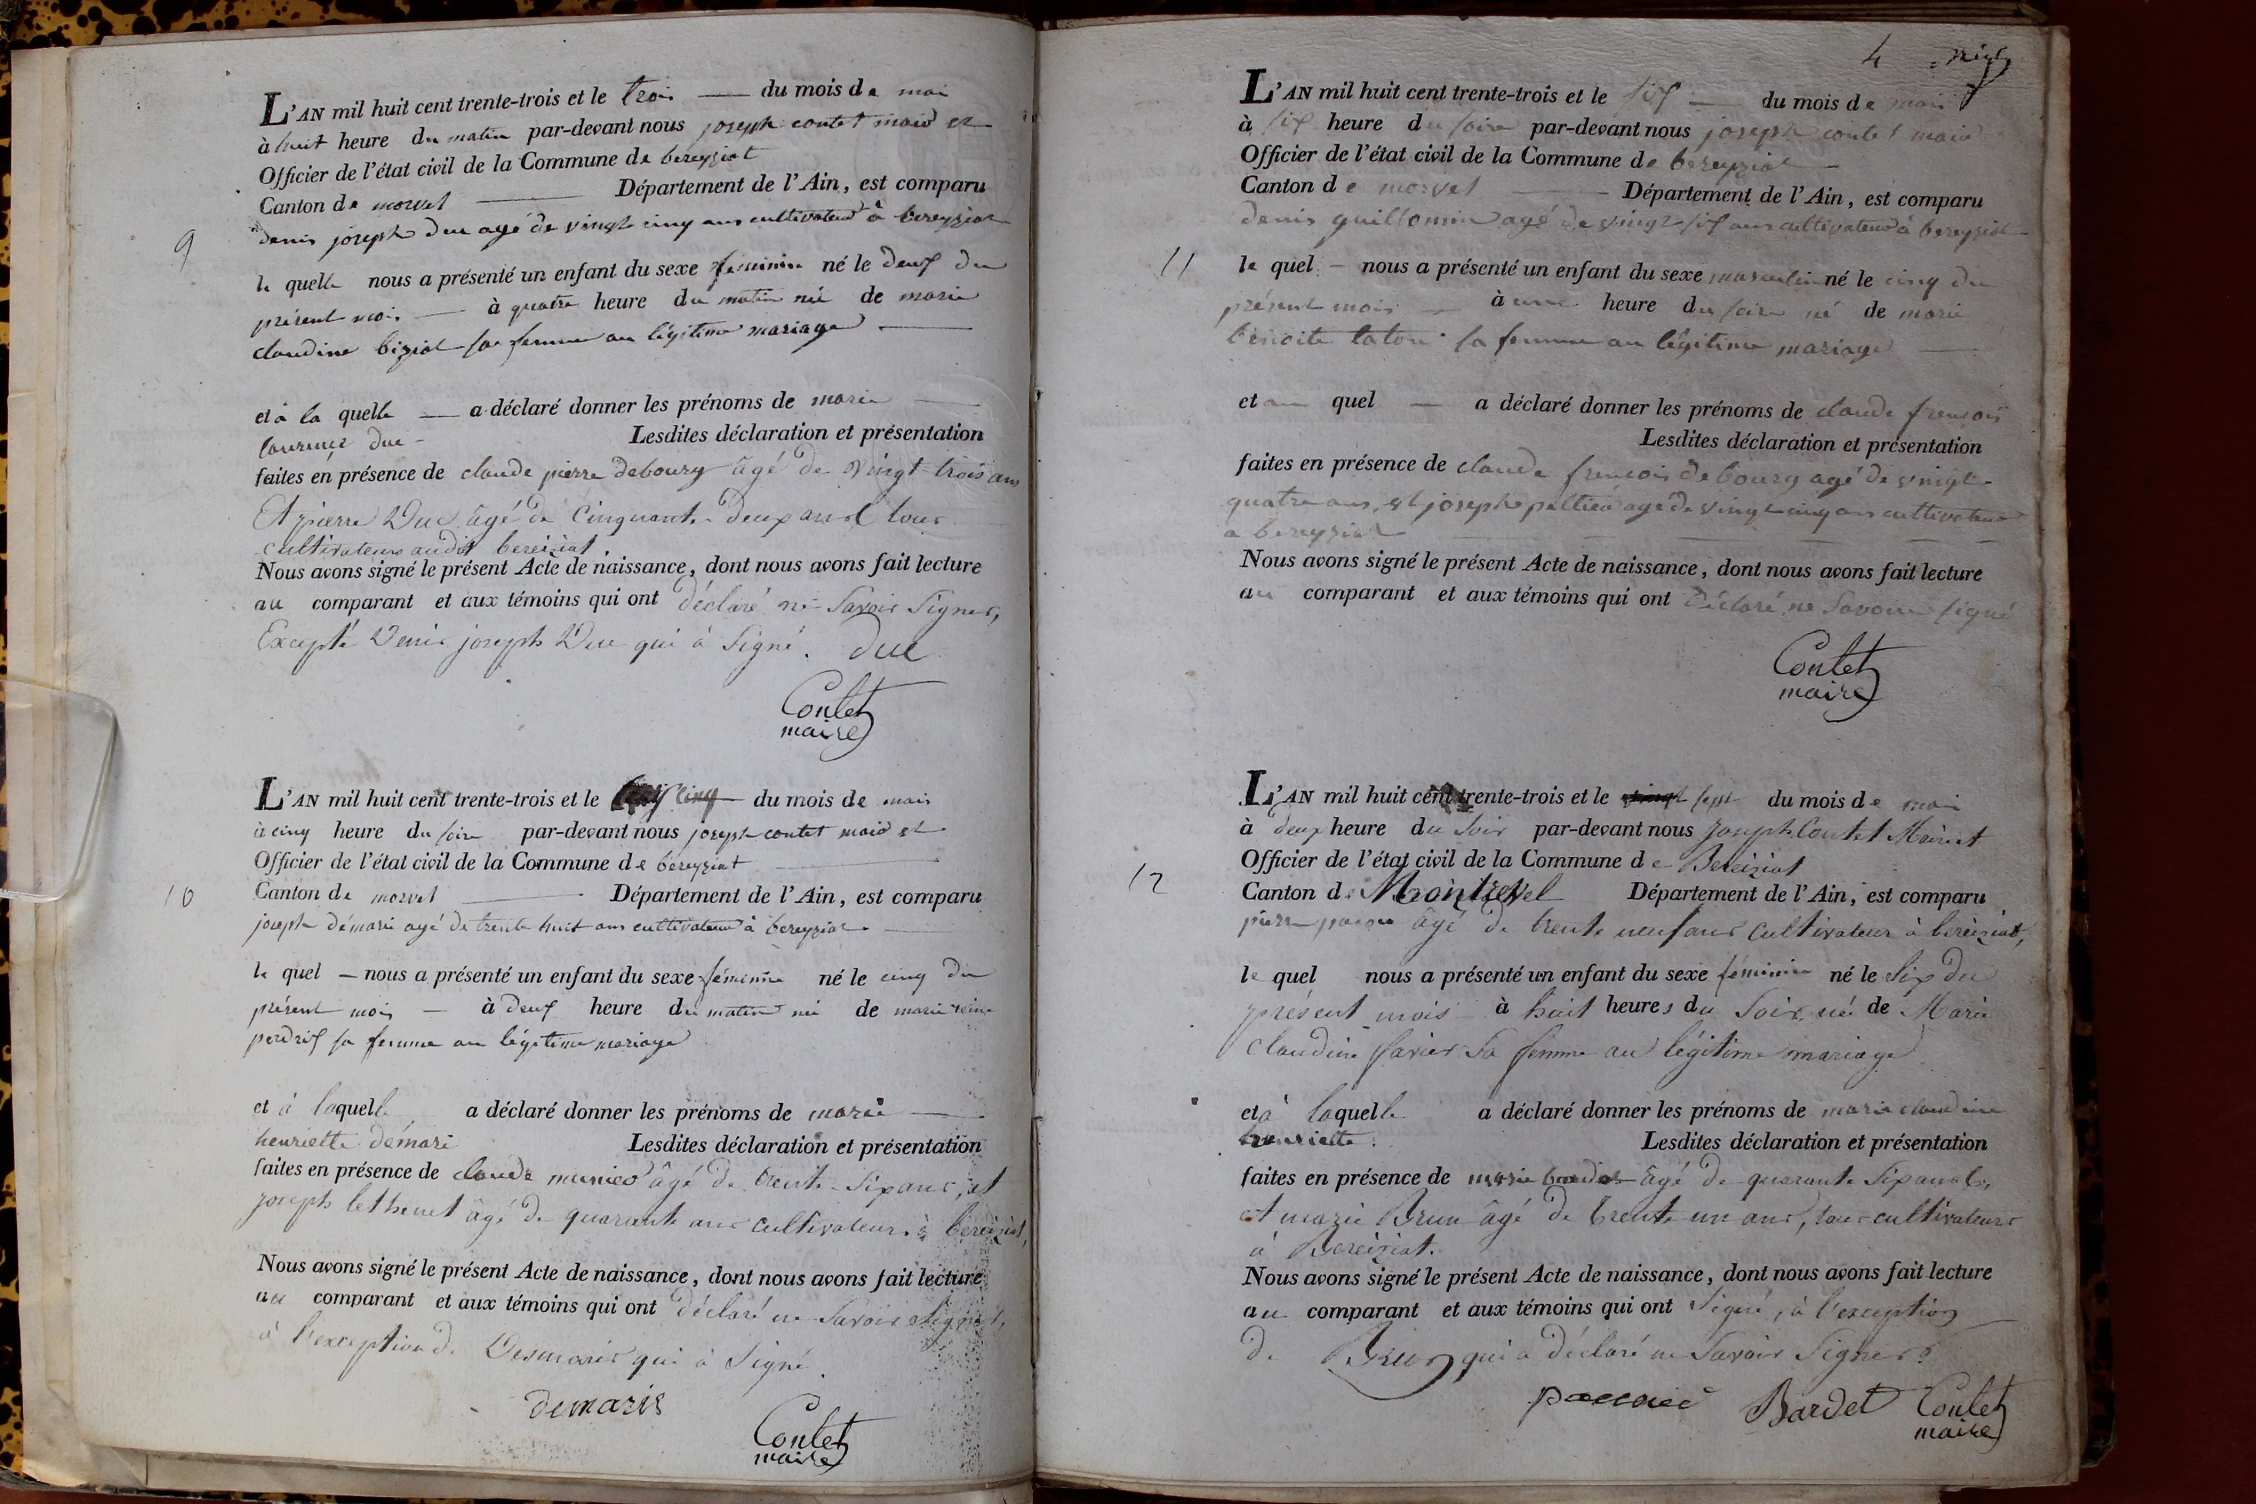 L'AN mil huit cent trente-trois et le trois du mois de mai
à huit heure du matin par-devant nous joseph contet maire et
Officier de l'état civil de la Commune de bereyziat
Canton de morvel Département de l'Ain, est comparu
denis joseph duc agé de vingt cinq ans cultivateur à bereyziat
9
le quelle nous a présenté un enfant du sexe feminin né le deux du
présent mois à quatre heure du matin née de marie
claudine biziat sa femme au légitime mariage
et à la quelle a déclaré donner les prénoms de marie
duc Lesdites déclaration et présentation
faites en présence de claude pierre debourg âgé de vingt-trois ans
Et pierre Duc âgé de Cinquante-deux ans tous
cultivateurs audit bereiziat.
Nous avons signé le présent Acte de naissance, dont nous avons fait lecture
au comparant et aux témoins qui ont déclaré ne Savoir Signer,
Excepté Denis joseph Duc qui à Signé. duc
Contet
maire
L'AN mil huit cent trente-trois et le cinq du mois de mais
à cinq heure du soire par-devant nous joseph contet maire et
Officier de l'état civil de la Commune de bereyziat
10
Canton de morvel Département de l'Ain, est comparu
joseph démarie agé de trente huit ans cultivateur à bereyziat
le quel nous a présenté un enfant du sexe féminine né le cinq du
présent mois à deux heure du matin née de marie
perdrix sa femme au légitime mariage
et à laquelle a déclaré donner les prénoms de marie
henriette démari Lesdites déclaration et présentation
faites en présence de claude munier âgé de trente-Six ans, et
joseph lethenet âgé de quarante ans cultivateurs à bereiziat,
Nous avons signé le présent Acte de naissance, dont nous avons fait lecture
au comparant et aux témoins qui ont déclaré ne Savoir Signer,
à l'exception de Desmaris qui à Signé
demaris
Contet
maire
4
L'AN mil huit cent trente-trois et le six du mois de mai
à six heure du soire par-devant nous joseph contet maire
Officier de l'état civil de la Commune de bereyziat
Canton de morvel Département de l'Ain, est comparu
denis guillomin agé de vingt six ans cultivateur à bereyziat
11
le quel nous a présenté un enfant du sexe masculin né le cinq du
présent mois à une heure du soire né de marie
benoite laton sa femme au légitime mariage
et au quel a déclaré donner les prénoms de claude françois
Lesdites déclaration et présentation
faites en présence de claude françois debourg agé de vingt
quatre ans, et joseph agé de vingt cinq ans cultivateur
a bereyziat
Nous avons signé le présent Acte de naissance, dont nous avons fait lecture
au comparant et aux témoins qui ont déclaré ne Savoir signé
Contet
maire
L'AN mil huit cent trente-trois et le vingt sept du mois de mai
à deux heure du Soir par-devant nous joseph Contet Maire et
Officier de l'état civil de la Commune de Bereiziat
12
Canton de Montrevel Département de l'Ain, est comparu
pierre âgé de trente neuf ans cultivateur à bereiziat,
le quel nous a présenté un enfant du sexe féminin né le Six du
présent mois à huit heures du Soir, né de Marie
Claudine favier Sa femme au légitime mariage
et à laquelle a déclaré donner les prénoms de marie claudine
henriette. Lesdites déclaration et présentation
faites en présence de marie âgé de quarante Six ans
et marie Brun âgé de trente un ans, tous cultivateurs
à Bereiziat.
Nous avons signé le présent Acte de naissance, dont nous avons fait lecture
au comparant et aux témoins qui ont Signé, à l'exception
de Brun qui a déclaré ne Savoir Signer.
Bardet Contet
maire